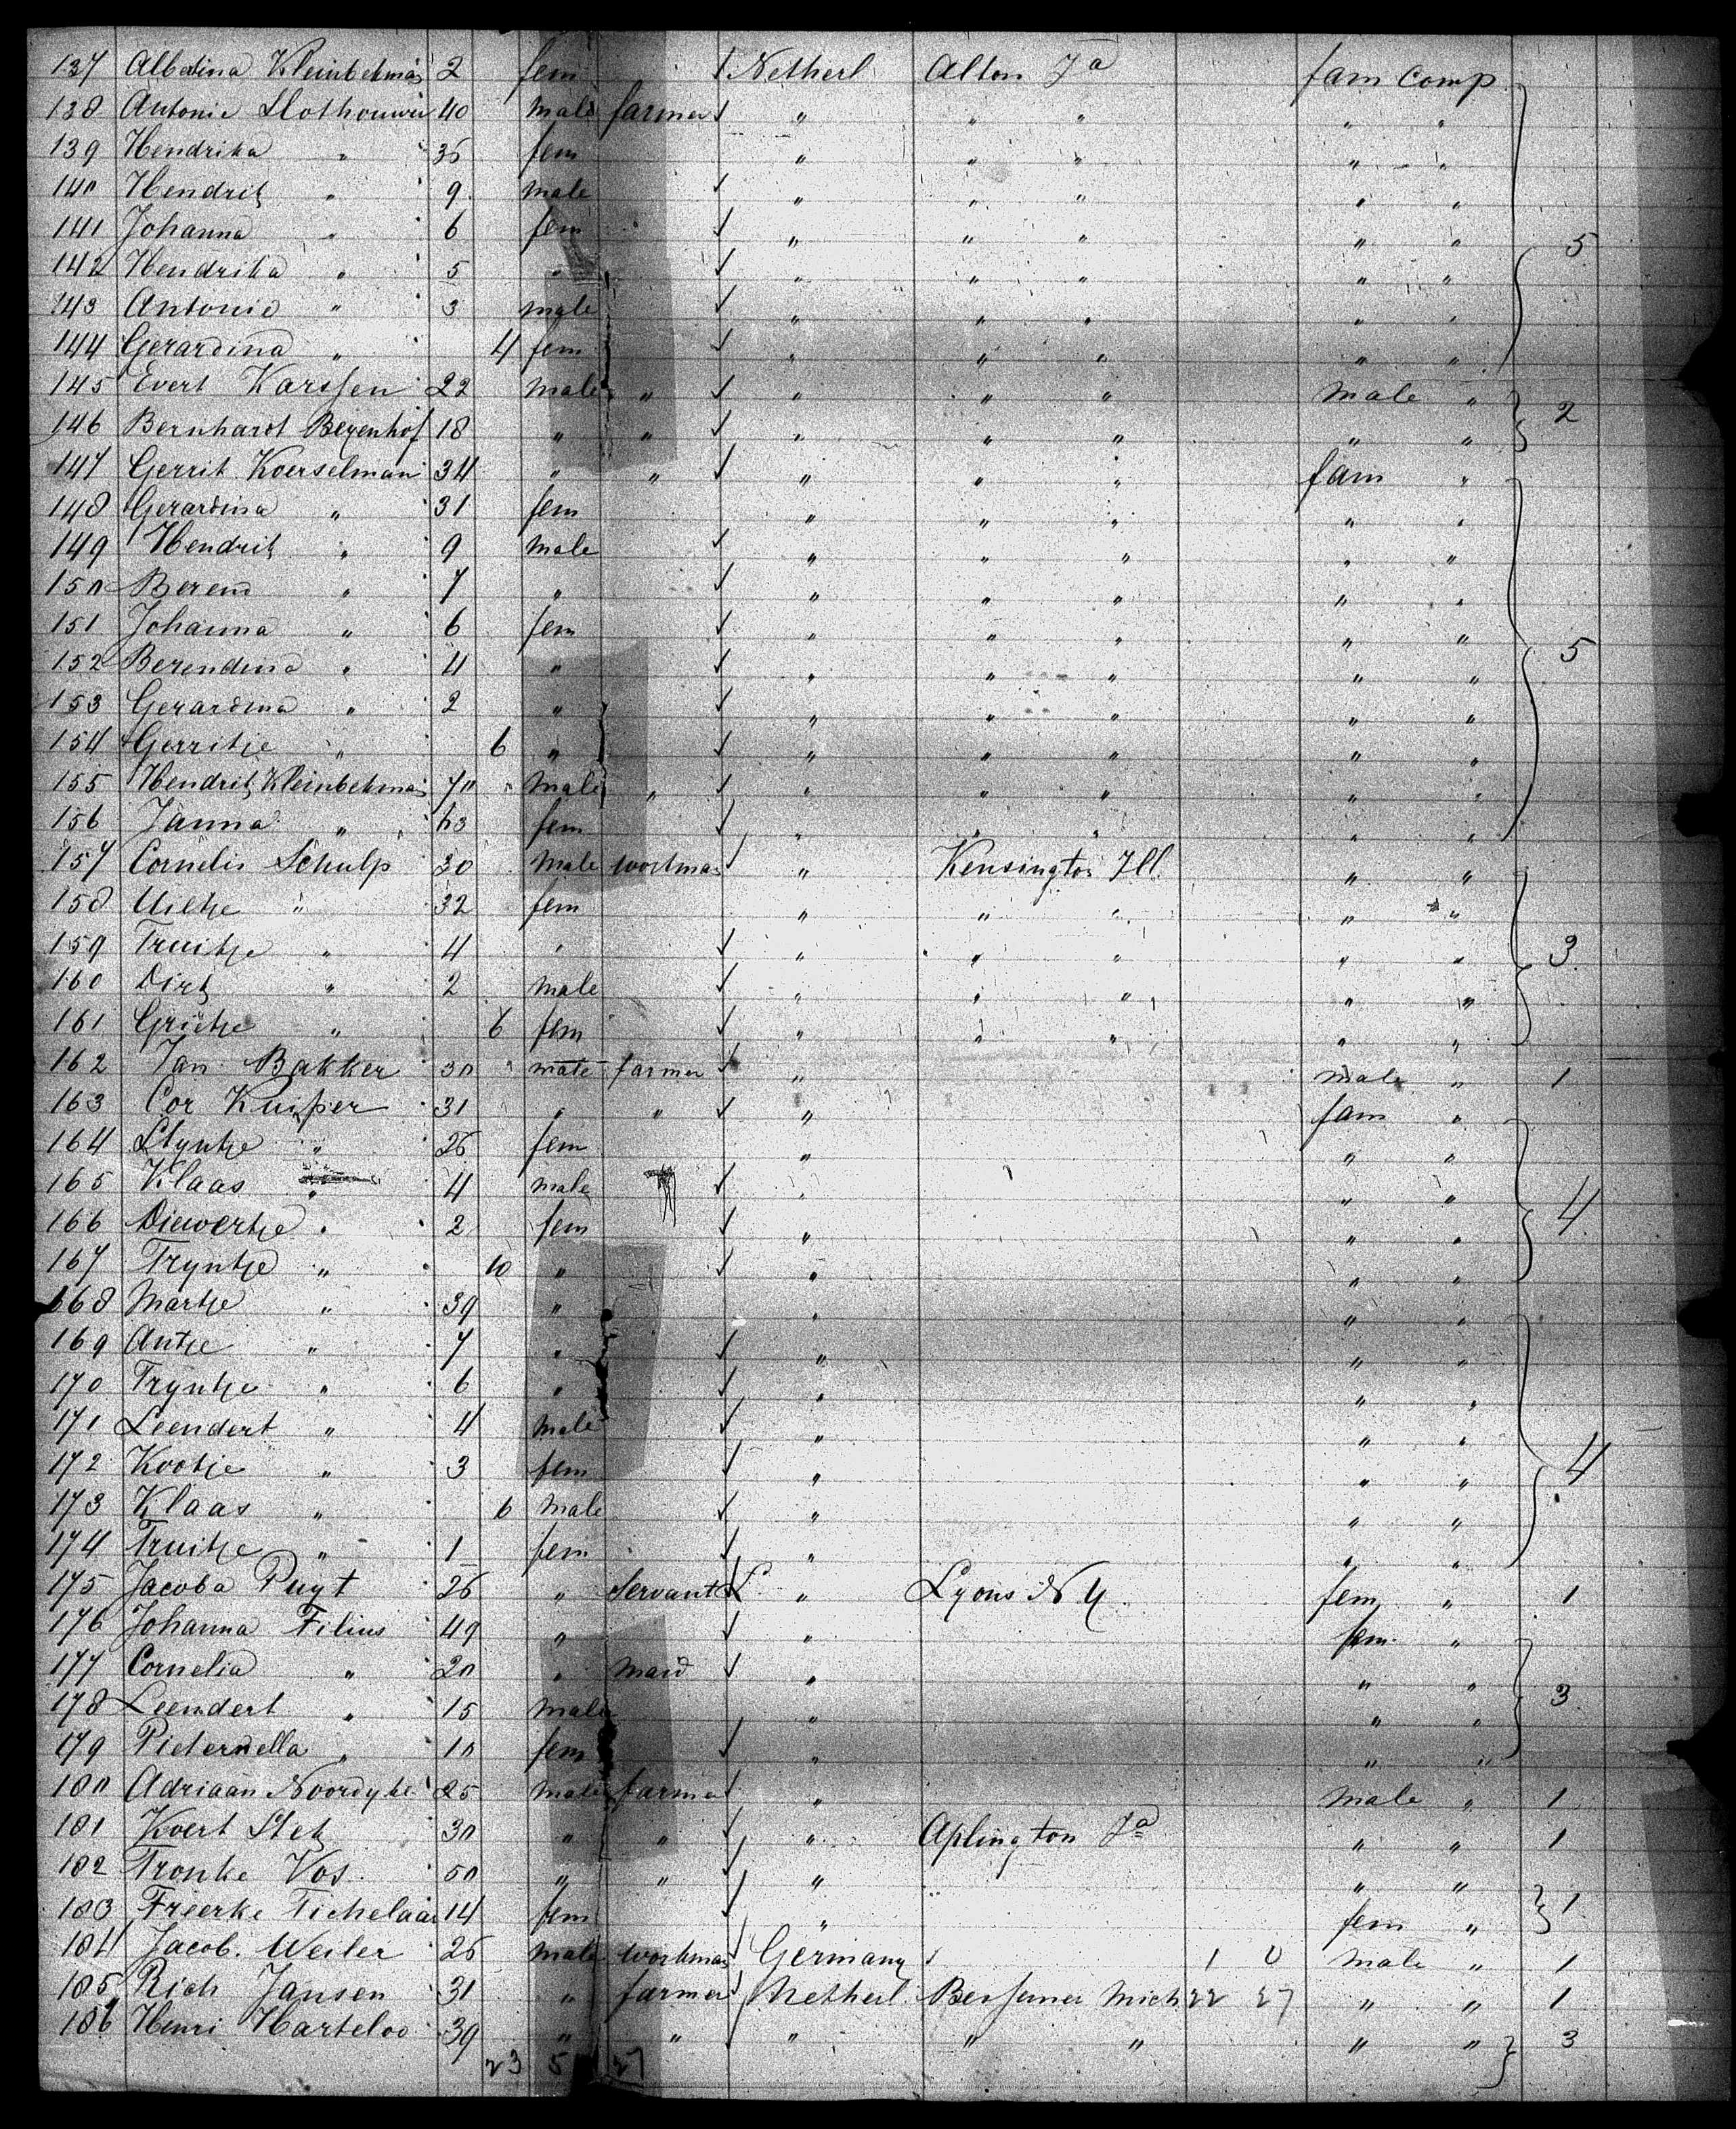 137 Albertina Kleinbekman 2 fem Netherl Alton Ja fam Comp
138 Antonie Slothouwer 40 male farmer " " " " "
139 Hendrika " 36 fem " " " " "
140 Hendrik " 9 male " " " " "
141 Johanna " 6 fem " " " " "
142 Hendrika " 5 " " " " " " 5
143 Antonie " 3 male " " " " "
144 Gerardina " 4 fem " " " " "
145 Evert Karssen 22 male " " " " male " 2
146 Bernhardt Beyenhof 18 " " " " " " "
147 Gerrit Koerselman 34 " " " " " fam "
148 Gerardina " 31 fem " " " " "
149 Hendrik " 9 male " " " " "
150 Berend " 7 " " " " " "
151 Johanna " 6 fem " " " " "
152 Berendina " 4 " " " " " " 5
153 Gerardina " 2 " " " " " "
154 Gerritje " 6 " " " " " "
155 Hendrik Kleinbekman 70 male " " " " " "
156 Janna " 63 fem " " " " "
157 Cornelis Schulp 30 male workman " Kensington Ill. " "
158 " 32 fem " " " " "
159 Truitje " 4 " " " " " " 3
160 Dirk " 2 male " " " " "
161 Grietje " 6 fem " " " " "
162 Jan Bakker 30 male farmer " male " 1
163 Cor Kuiper 31 " " " fam "
164 Styntje " 26 fem " " "
165 Klaas " 4 male " " "
166 Diewertje " 2 fem " " " 4
167 Tryntje " 10 " " " "
168 Martje " 39 " " " "
169 Antje " 7 " " " "
170 Tryntje " 6 " " " "
171 Leendert " 4 male " " "
172 Kootje " 3 fem " " " 4
173 Klaas " 6 male " " "
174 Truitje " 1 fem " " "
175 Jacoba Puyt 26 " Servant " Lyons N Y fem " 1
176 Johanna Filius 49 " " fem "
177 Cornelia " 20 " maid " " "
178 Leendert " 15 male " " " 3
179 Pieternella " 10 fem " " "
180 Adriaan Noordyke 25 male farmer " male " 1
181 Kvert Stek 30 " " " Aplington Ja " " 1
182 Tronke Vos 50 " " " " "
183 Freerke Tichelaar 14 fem " fem " 1
184 Jacob Weiler 26 male workman Germany 1 0 male " 1
185 Rich Jansen 31 " farmer Netherl Bessemer Mich 22 27 " " 1
186 Henri Harteloo 39 " " " " " " " 3
23 5 27